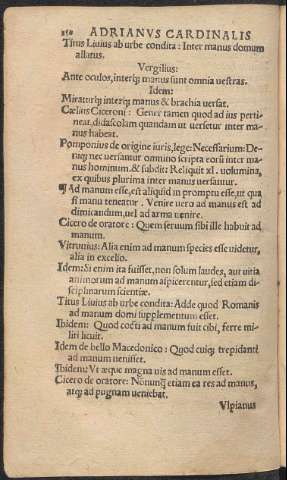 250 ADRIANVS CARDINALIS
Titus Liuius ab urbe condita: Inter manus domum
allatus.
Vergilius:
Ante oculos, interq; manus sunt omnia uestras.
Idem:
Miraturq; interq; manus & brachia uersat.
Cælius Ciceroni: Genus tamen quod ad ius perti-
neat, didascolam quandam ut uersetur inter ma-
nus habeat.
Pomponius de origine iuris, lege: Necessarium: De-
niq; nec uersantur omnino scripta eorū inter ma-
nus hominum. & subdit: Reliquit xl. uolumina,
ex quibus plurima inter manus uersantur.
¶ Ad manum esse, est aliquid in promptu esse, ut qua
si manu teneatur. Venire uero ad manus est ad
dimicandum, uel ad arma uenire.
Cicero de oratore: Quem seruum sibi ille habuit ad
manum.
Vitruuius: Alia enim ad manum species esse uidetur,
alia in excelso.
Idem: Si enim ita fuisset, non solum laudes, aut uitia
animorum ad manum aspicerentur, sed etiam di-
sciplinarum scientiæ.
Titus Liuius ab urbe condita: Adde quod Romanis
ad manum domi supplementum esset.
Ibidem: Quod ad manum fuit cibi, ferre mi-
liti licuit.
Idem de bello Macedonico: Quod cuiq; trepidanti
ad manum uenisset.
Ibidem: Vt æque magna uis ad manum esset.
Cicero de oratore: Nōnunq̄ etiam ea res ad manus,
atq; ad pugnam ueniebat.
Vlpianus